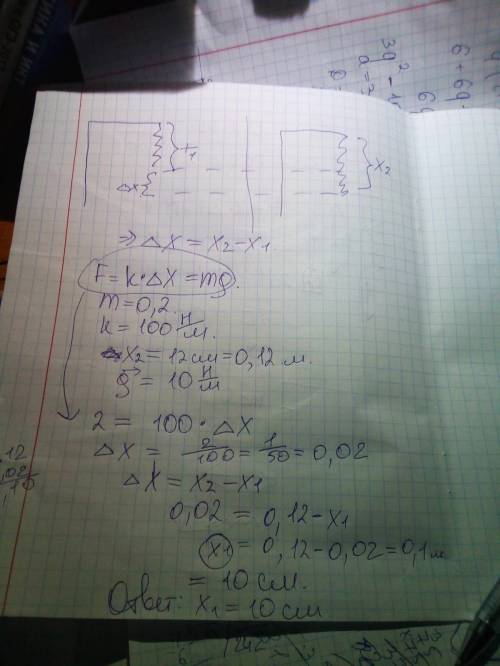 x₁
x₂
Δx
=> Δx = x₂-x₁
F = k·Δx = mg.
m = 0,2.
k = 100 Н/м.
x₂ = 12 см = 0,12 м.
g = 10 Н/м
2 = 100 · Δx
Δx = 2/100 = 1/50 = 0,02
Δx = x₂-x₁
0,02 = 0,12-x₁
x₁ = 0,12-0,02=0,1 м
= 10 см.
Ответ: x₁ = 10 см